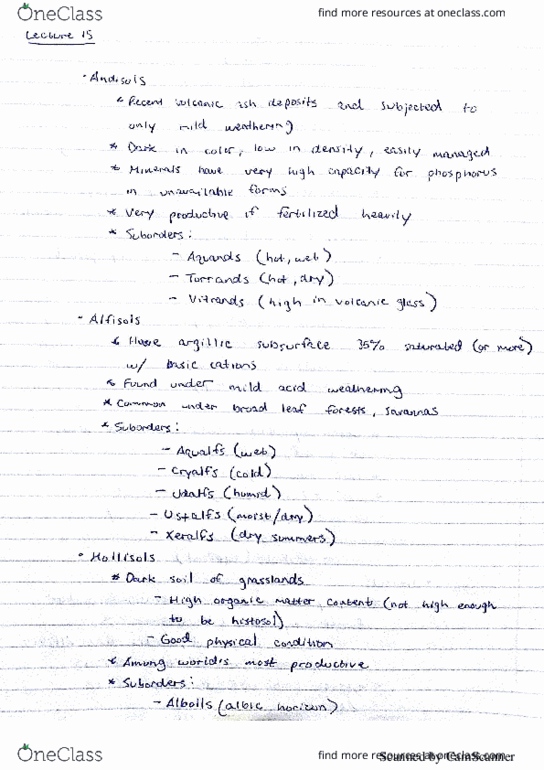 OneClass
find more resources at oneclass.com
Lecture 15
• Andisols
* Recent volcanic ash deposits and subjected to
only mild weathering
* Dark in color, low in density, easily managed
* Minerals have very high capacity for phosphorus
in unavailable forms
* Very productive if fertilized heavily
* Suborders:
- Aquands (hot, web)
- Torrands (hot, dry)
- Vitrands (high in volcanic glass)
• Alfisols
* Have argillic subsurface 35% saturated (or more)
w/ basic cations
* Found under mild acid weathering
* Common under broad leaf forests, savannas
* Suborders:
- Aqualfs (web)
- Cryalfs (cold)
- Udalfs (humid)
- Ustalfs (moist/dry)
- Xeralfs (dry summers)
• Mollisols
* Dark soil of grasslands
- High organic matter content (not high enough
to be histosol)
- Good physical condition
* Among world's most productive
* Suborders:
- Albolls (albic horizon)
OneClass
find more resources at oneclass.com
Scanned by CamScanner